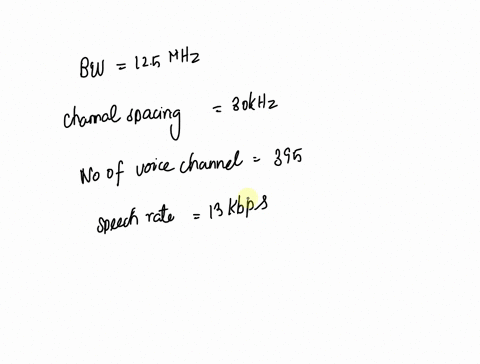 BW = 12.5 MHz
channal spacing = 30kHz
No of voice channel = 395
speech rate = 13 Kbps